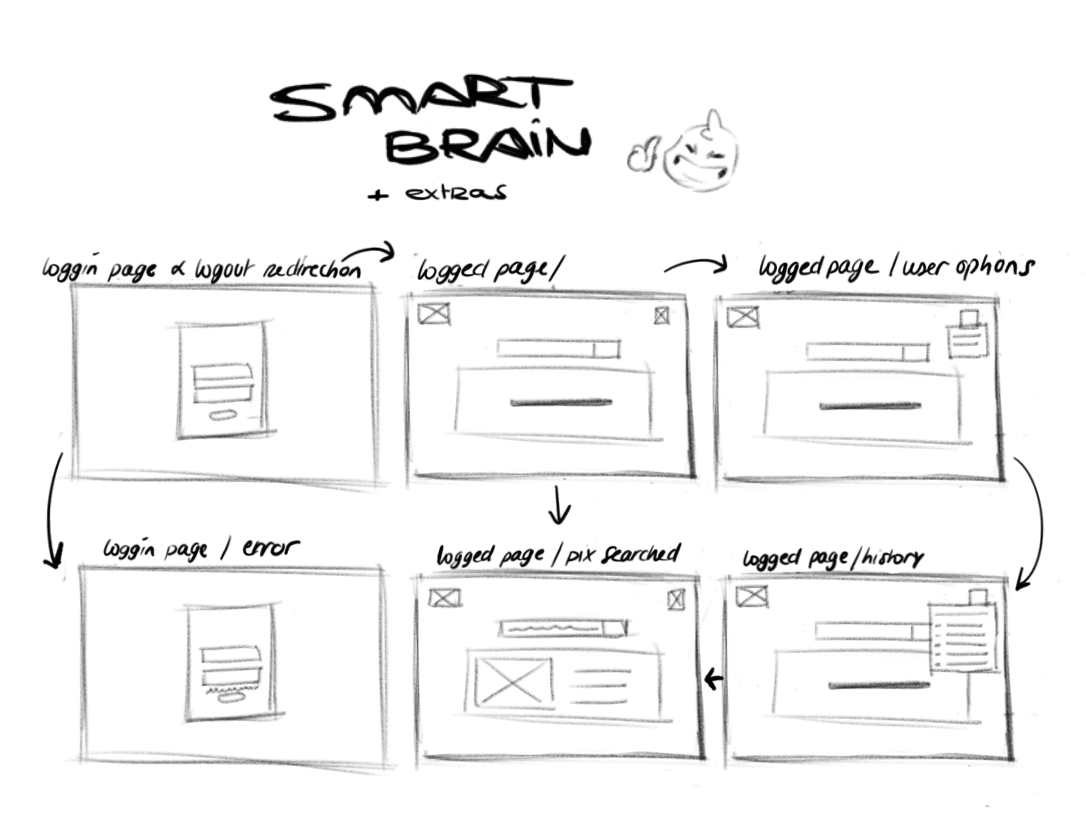 SMART
BRAIN
+ extras
loggin page & logout redirection
logged page/
logged page / user options
loggin page / error
logged page / pix searched
logged page / history